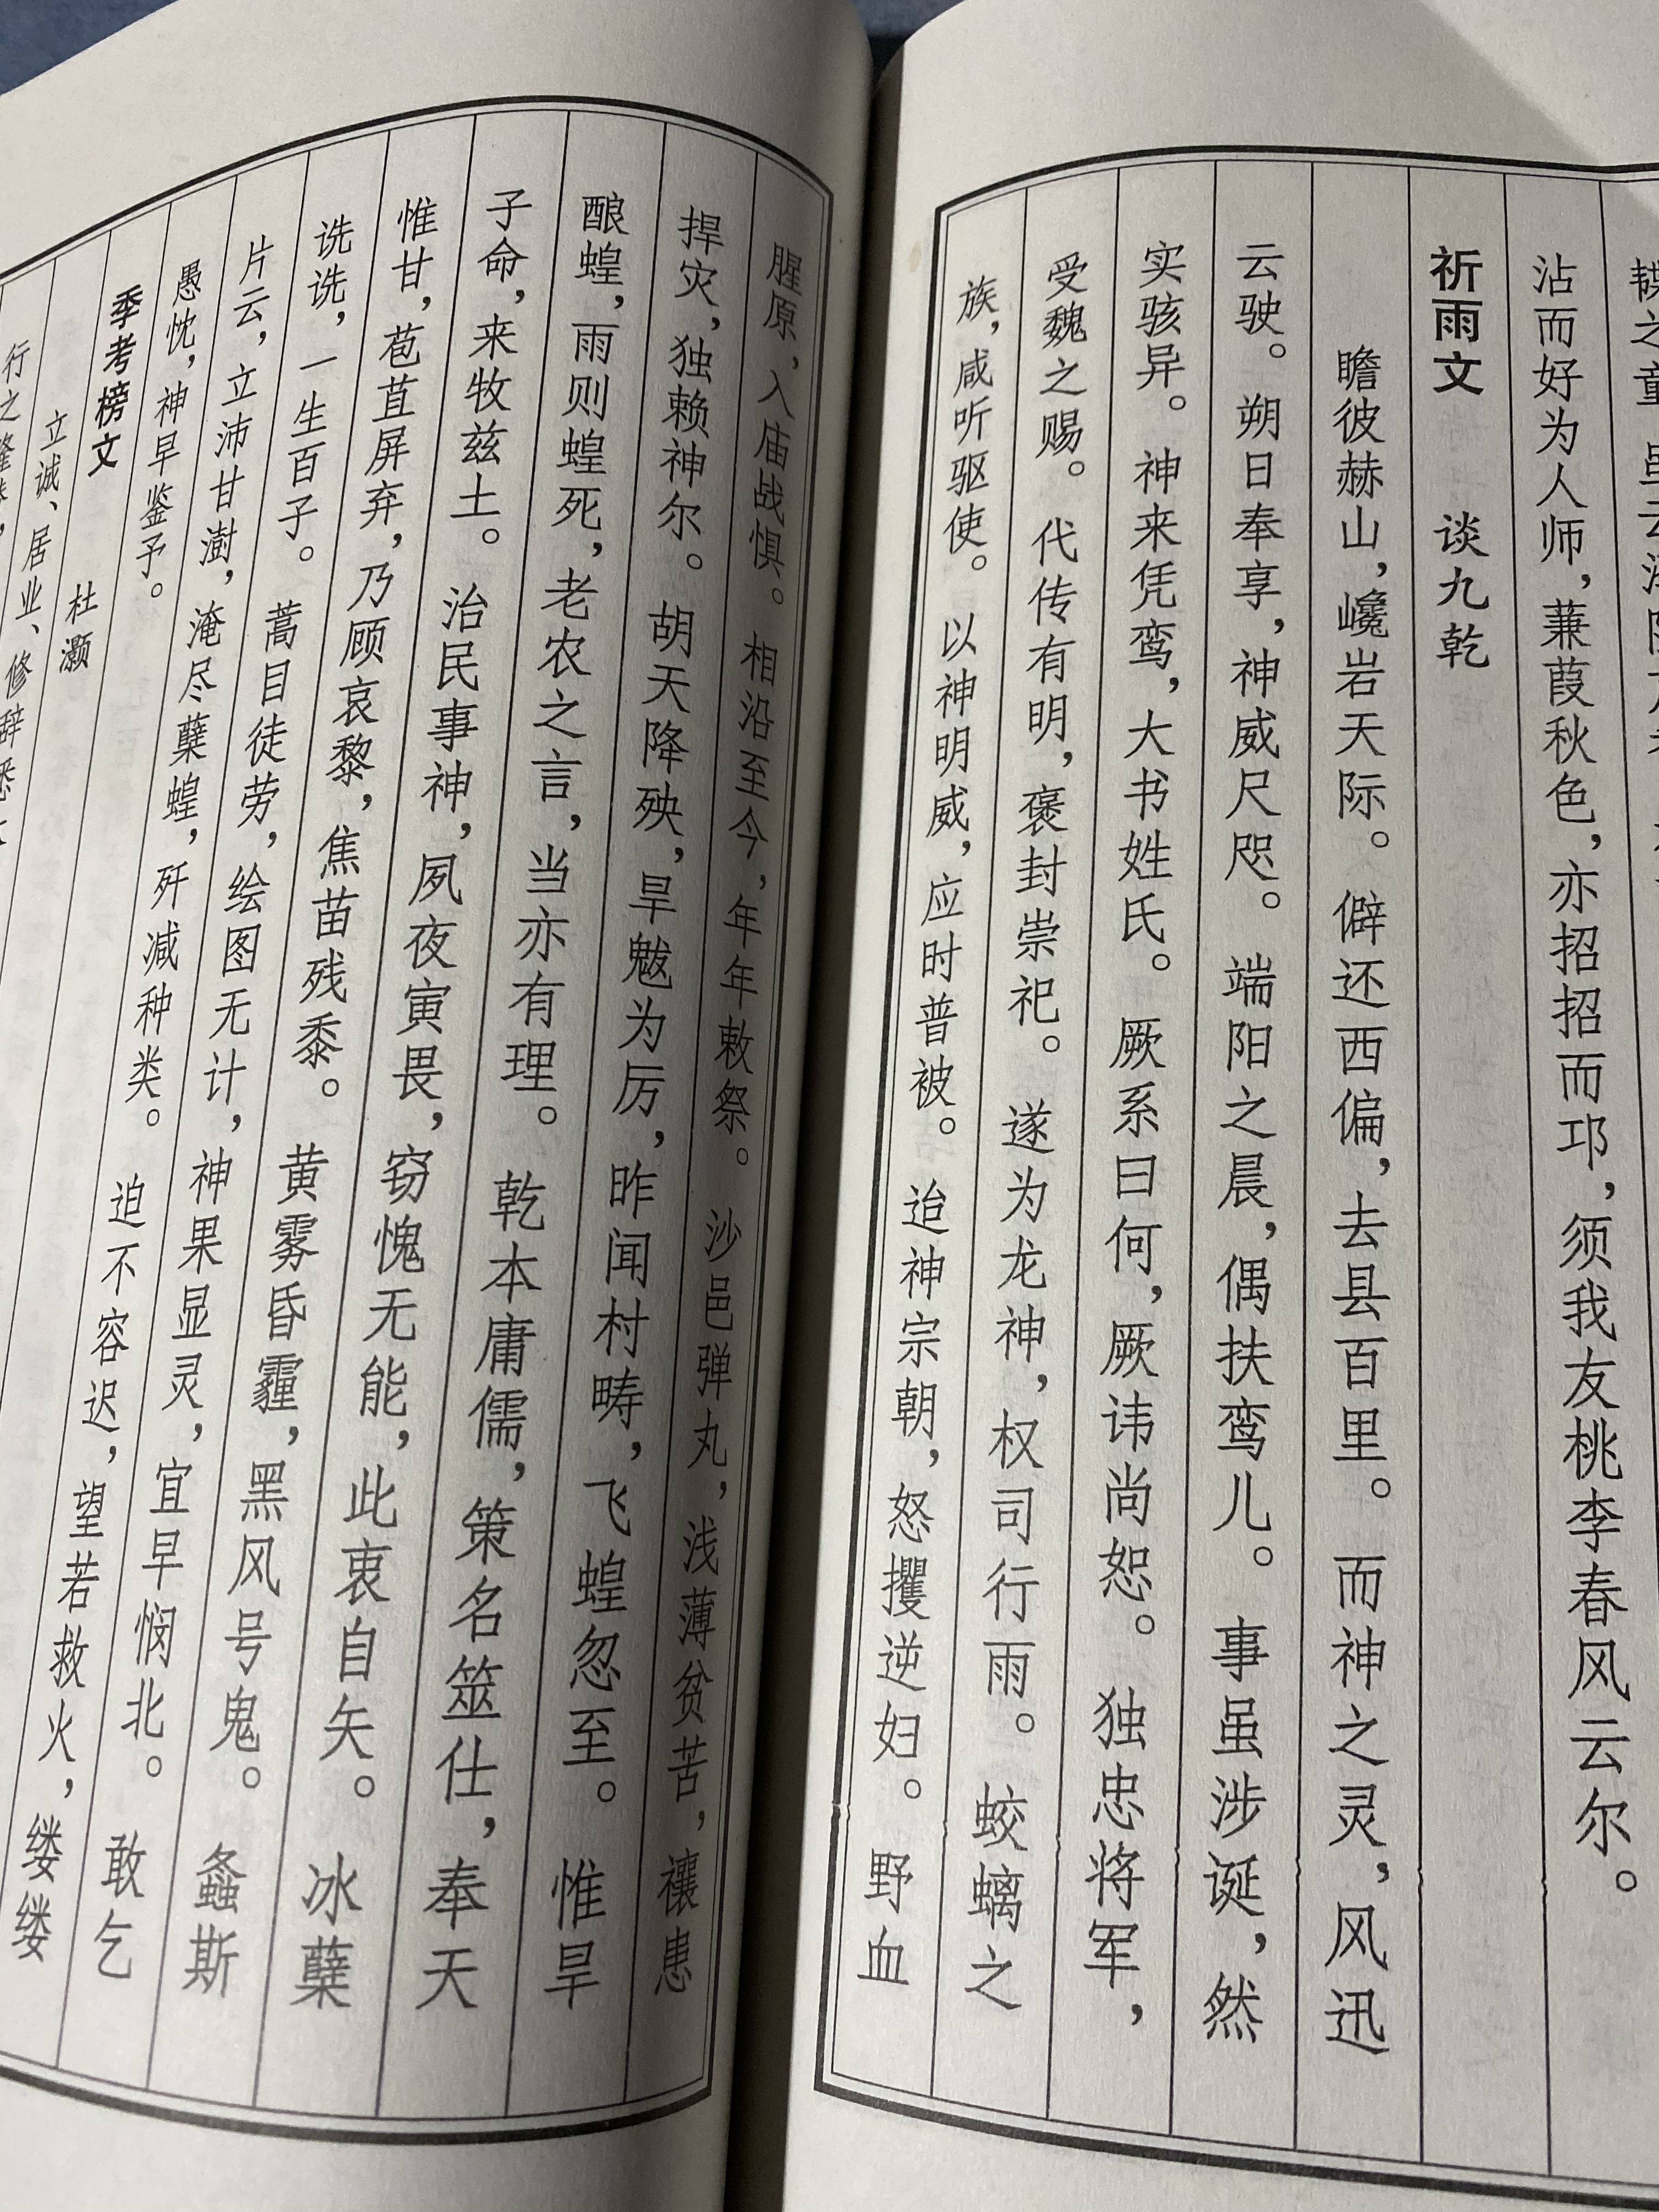 沾而好为人师，蒹葭秋色，亦招招而邛，须我友桃李春风云尔。
祈雨文　谈九乾
瞻彼赫山，巉岩天际。僻还西偏，去县百里。而神之灵，风迅
云驶。朔日奉享，神威尺咫。端阳之晨，偶扶鸾儿。事虽涉诞，然
实骇异。神来凭鸾，大书姓氏。厥系曰何，厥讳尚恕。独忠将军，
受魏之赐。代传有明，褒封崇祀。遂为龙神，权司行雨。蛟螭之
族，咸听驱使。以神明威，应时普被。迨神宗朝，怒攫逆妇。野血
腥原，入庙战惧。相沿至今，年年敕祭。沙邑弹丸，浅薄贫苦，禳患
捍灾，独赖神尔。胡天降殃，旱魃为厉，昨闻村畴，飞蝗忽至。惟旱
酿蝗，雨则蝗死，老农之言，当亦有理。乾本庸儒，策名筮仕，奉天
子命，来牧兹土。治民事神，夙夜寅畏，窃愧无能，此衷自矢。冰蘖
惟甘，苞苴屏弃，乃顾哀黎，焦苗残黍。黄雾昏霾，黑风号鬼。螽斯
诜诜，一生百子。蒿目徒劳，绘图无计，神果显灵，宜早悯北。敢乞
片云，立沛甘澍，淹尽蘖蝗，歼减种类。迫不容迟，望若救火，缕缕
愚忱，神早鉴予。
季考榜文　杜灏
立诚、居业、修辞
行之